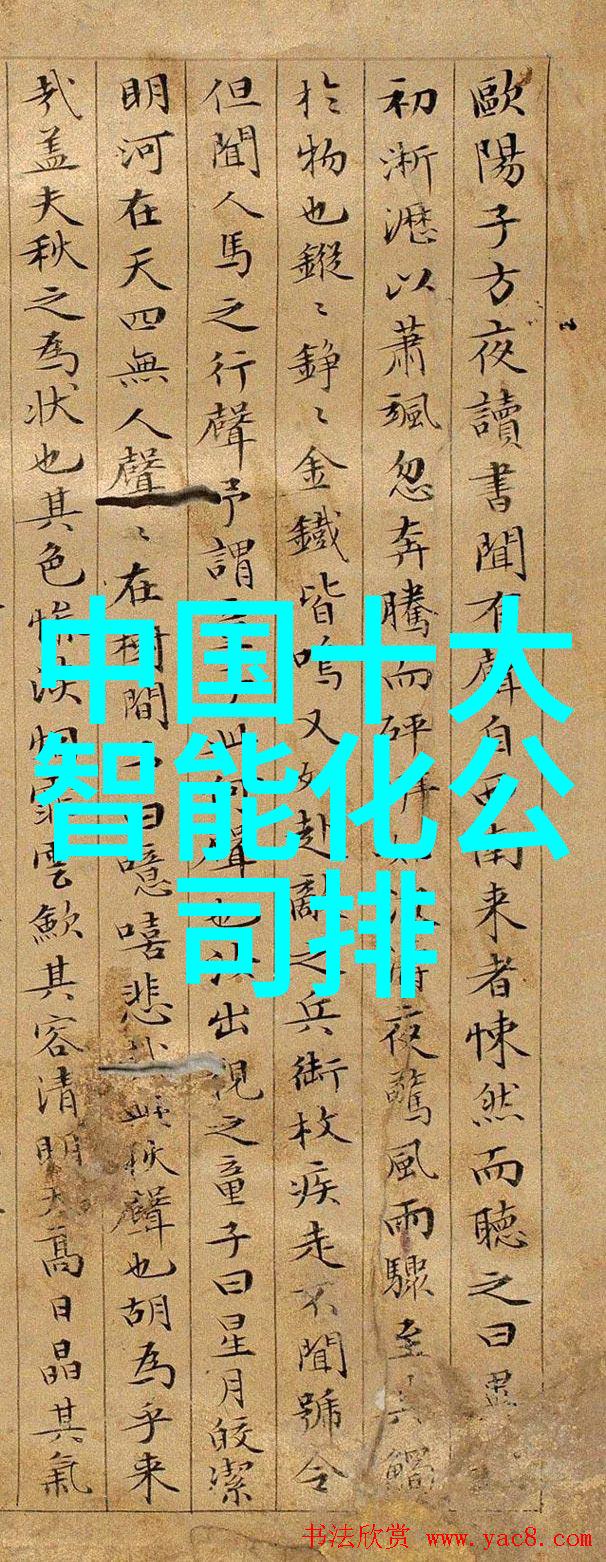 歐陽子方夜讀書聞有聲自西南来者悚然而聽之曰異
初淅瀝以蕭颯忽奔騰而砰湃如夜驚風雨驟至其觸
於物也鏦〻錚〻金鐵皆鳴又如赴敵之兵銜枚疾走不聞號令
但聞人馬之行聲予謂子此何聲也汝出視之童子曰星月皎潔
明河在天四無人聲〻在樹間曰噫嘻悲哉此秋聲也胡為乎来
哉盖夫秋之為状也其色惨淡烟霏雲歛其容清明天高日晶其氣
中国十大
智能化公
司排
书法欣赏 www.yac8.com